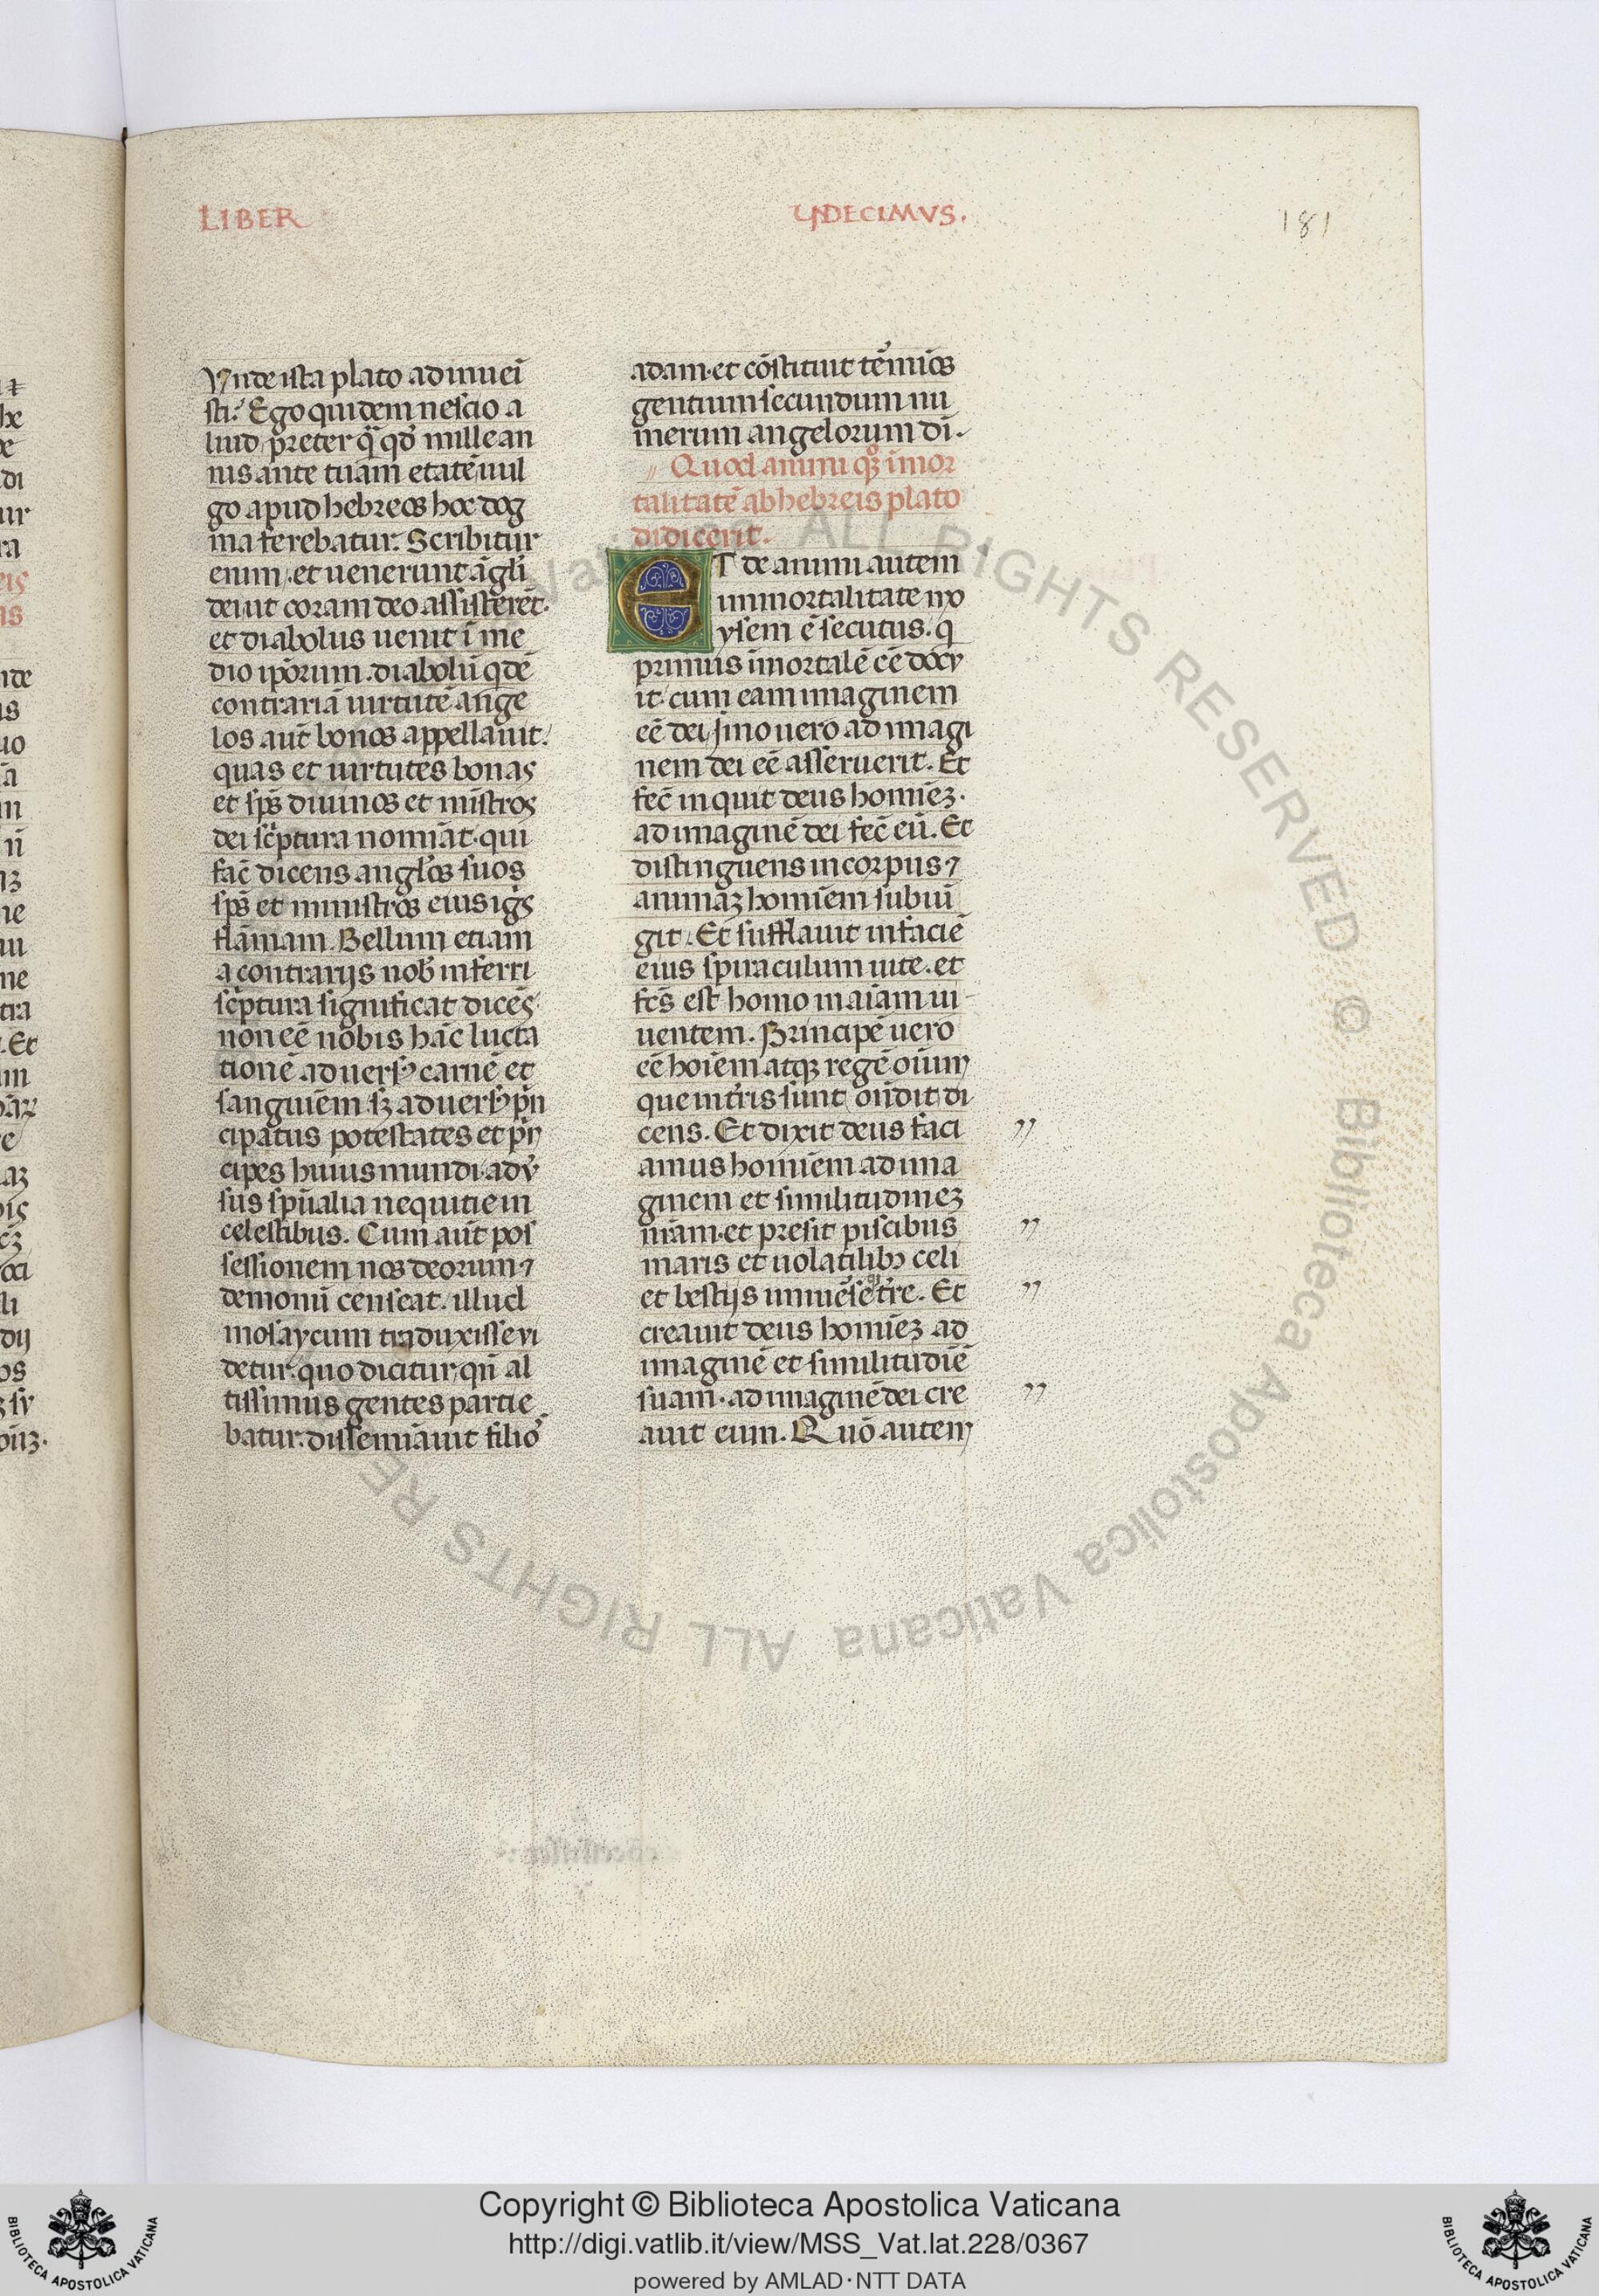 LIBER
VNDECIMVS.
181
Vnde ista plato ad inueī
sti? Ego quidem nescio a
liud preter q̄ qd̓ mille an
nis ante tuam etatē uul
go apud hebreos hoc dog
ma ferebatur. Scribitur
enim. et uenerunt āgli
dei ut coram deo assisterēt.
et diabolus uenit ī me
dio ip̄orum. diabolū qdē
contrariā uirtutē ange
los aūt bonos appellauit.
quas et uirtutes bonas
et sp̄s diuinos et mīstros
dei sc̓ptura nomīat. qui
fac̄ dicens anglōs suos
sp̄s et ministros eius igs̄
flāmam. Bellum etiam
a contrarijs nob̄ inferri
sc̓ptura significat dicēs
non eē nobis hāc lucta
tionē aduersꝰ carnē et
sanguīem. sꝫ aduersꝰ pn̄
cipatus potestates et pn̄
cipes huius mundi. adv̓
sus spūalia nequitie in
celestibus. Cum aūt pos
sessionem nos deorum ⁊
demonū censeat. illud
mosaycum traduxisse vi
detur. quo dicitur, qn̄ al
tissimus gentes partie
batur. dissemīauit filioꝰ
adam. et cōstituit tēmīos
gentium secundum nu
merum angelorum dī.
Quod animi qꝫ īmor
talitatē ab hebreis plato
didicerit.
ET de animi autem
immortalitate mo
ysem ē secutus. q̄
primus īmortalē eē docu
it. cum eam imaginem
eē dei, jmo uero ad imagi
nem dei eē asseruerit. Et
fec̄ inquit deus homīeꝫ.
ad imaginē dei fec̄ eū. Et
distinguens in corpus ⁊
animaꝫ homīem subiū
git. Et sufflauit in faciē
eius spiraculum uite. et
fcs̄ est homo in aīam ui
uentem. Principē uero
eē hoīem atqꝫ regē oīum
que in tr̄is sunt on̄dit di
cens. Et dixit deus faci ”
amus homīem ad ima
ginem et similitudineꝫ
nr̄am. et presit piscibus ”
maris et uolatilibꝫ celi
et bestijs uniuēseqꝫ tr̄e. Et ”
creauit deus homīeꝫ ad
imaginē et similitudīē
suam. ad imaginē dei cre ”
auit eum. Quō autem
Copyright © Biblioteca Apostolica Vaticana
http://digi.vatlib.it/view/MSS_Vat.lat.228/0367
powered by AMLAD·NTT DATA